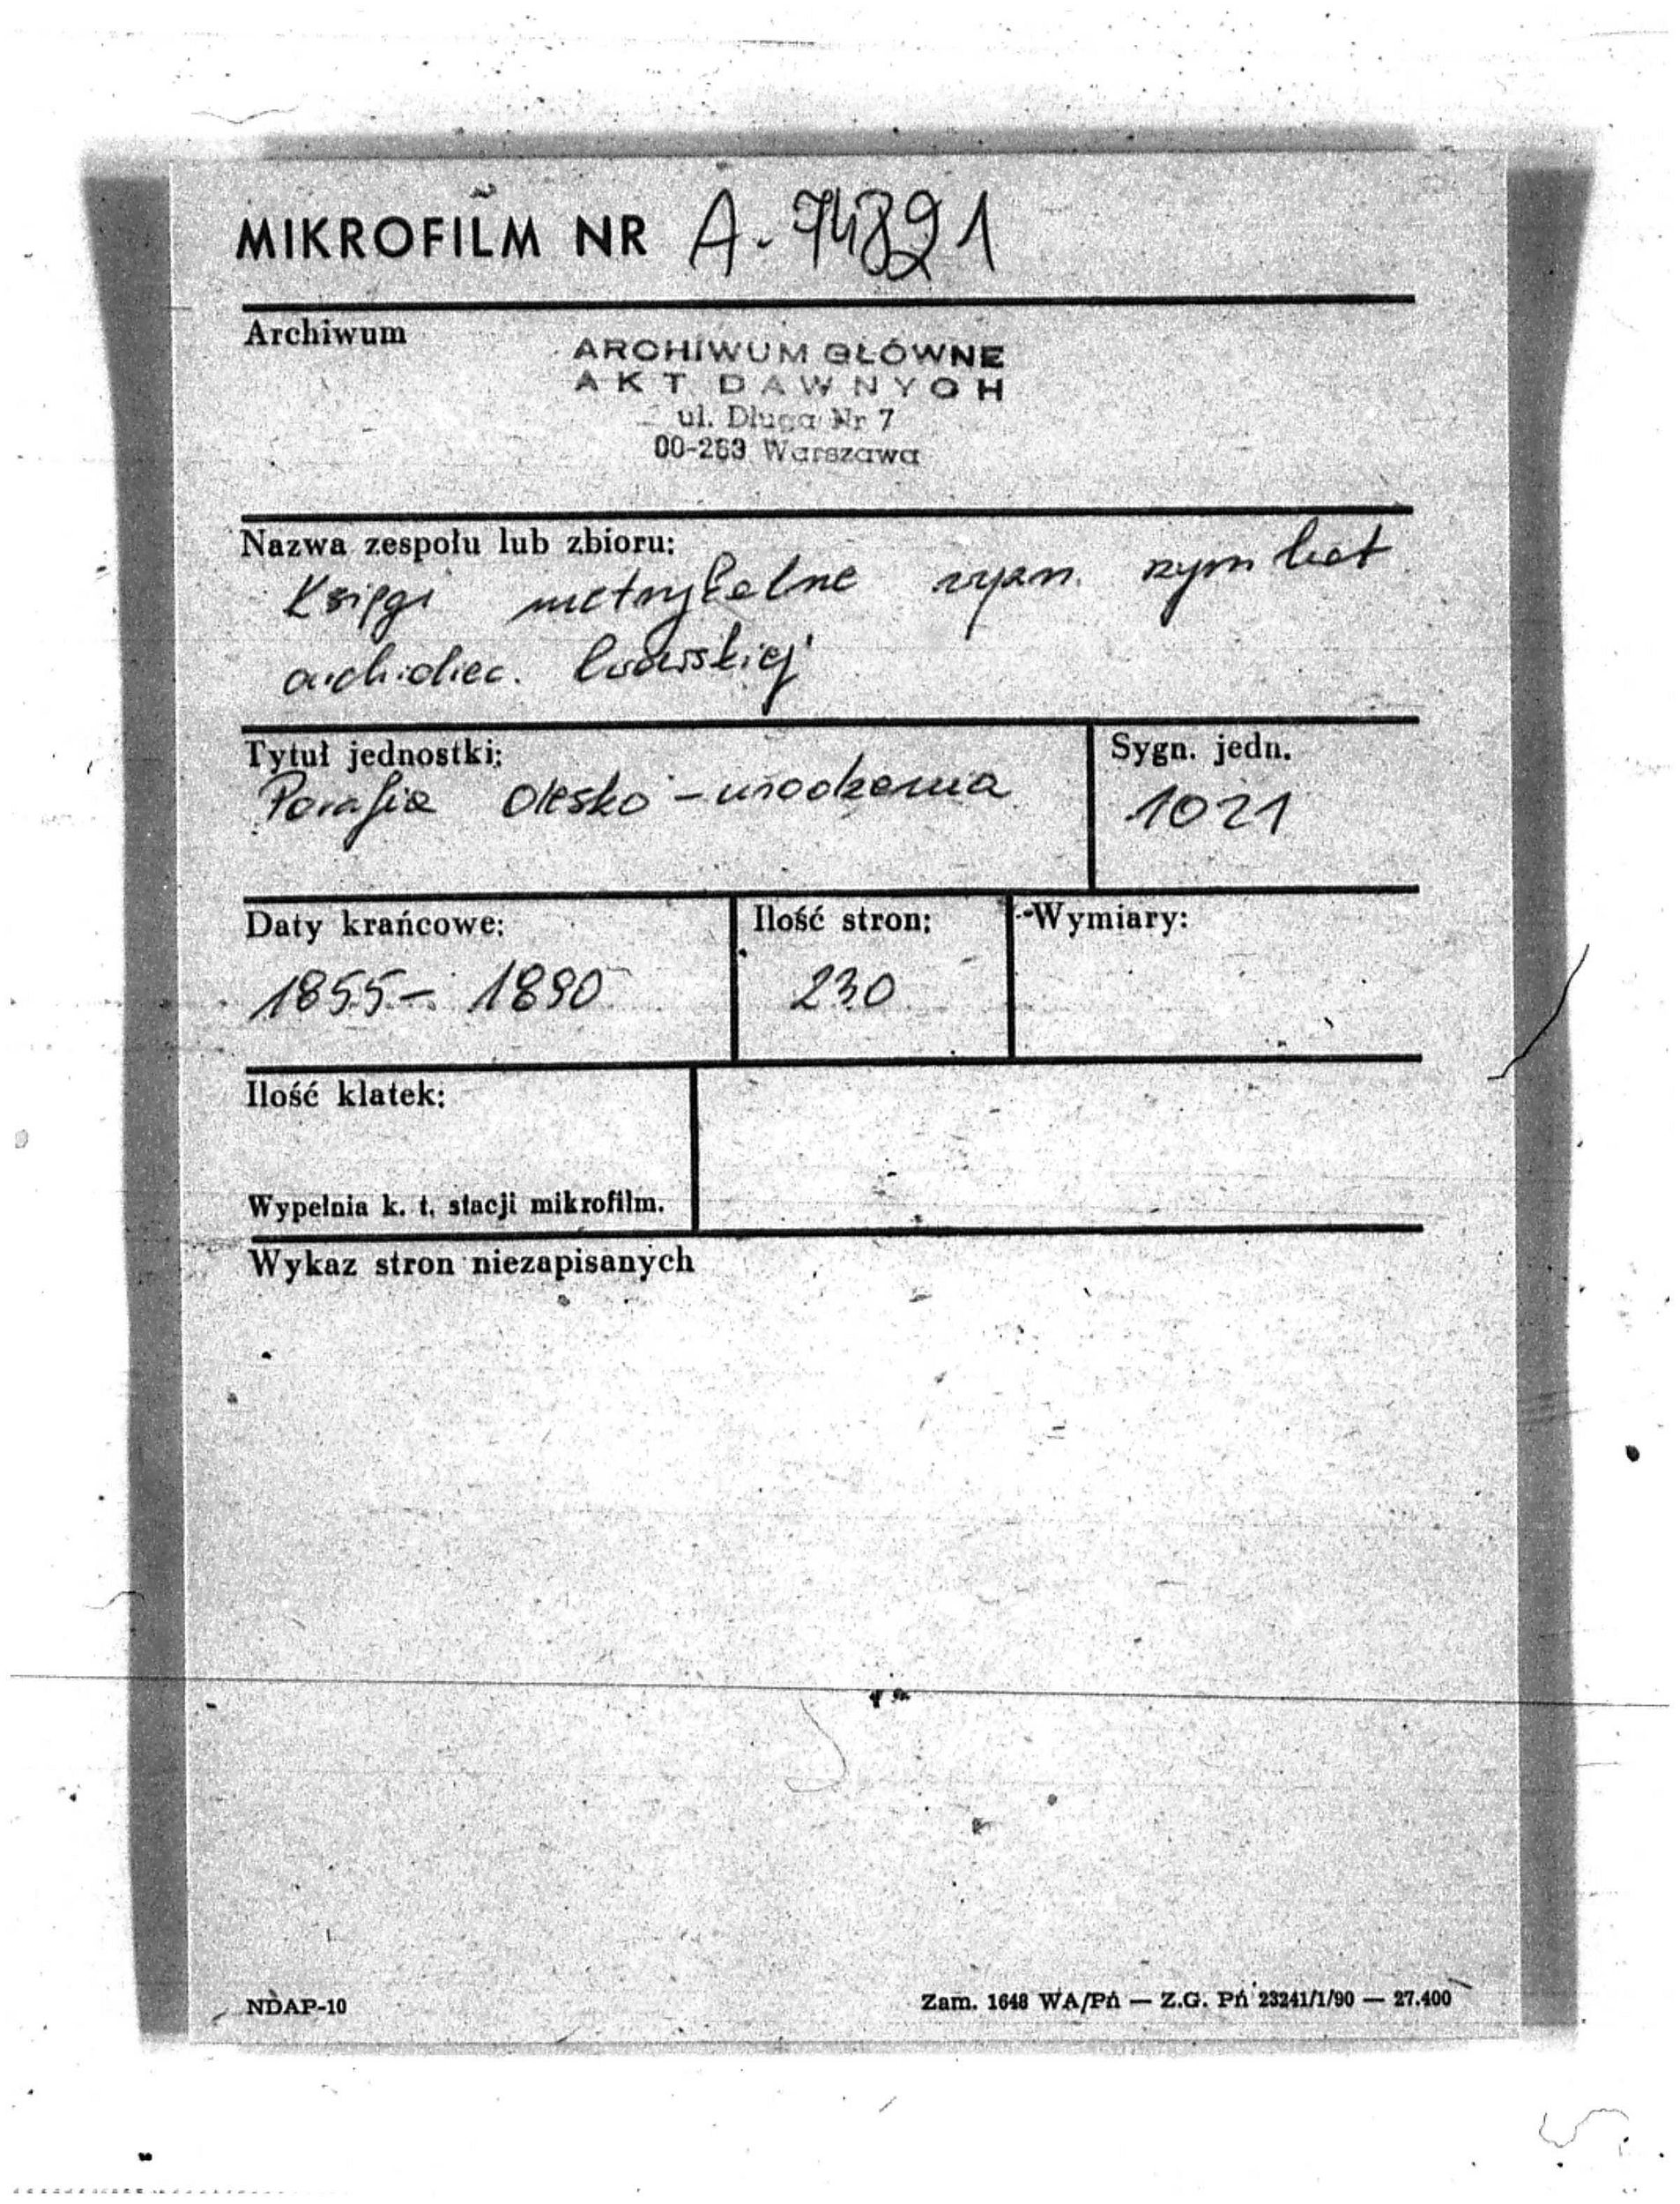 MIKROFILM NR A-74821
Archiwum
ARCHIWUM GŁÓWNE
AKT DAWNYCH
ul. Długa Nr 7
00-263 Warszawa
Nazwa zespołu lub zbioru:
Księgi metrykalne wyzn. rzym kat
archidiec. lwowskiej
Tytuł jednostki:
Parafia Olesko - urodzenia
Sygn. jedn.
1021
Daty krańcowe:
1855 - 1890
Ilość stron:
230
Wymiary:
Ilość klatek:
Wypełnia k. t. stacji mikrofilm.
Wykaz stron niezapisanych
NDAP-10
Zam. 1648 WA/Pń — Z.G. Pń 23241/1/90 — 27.400